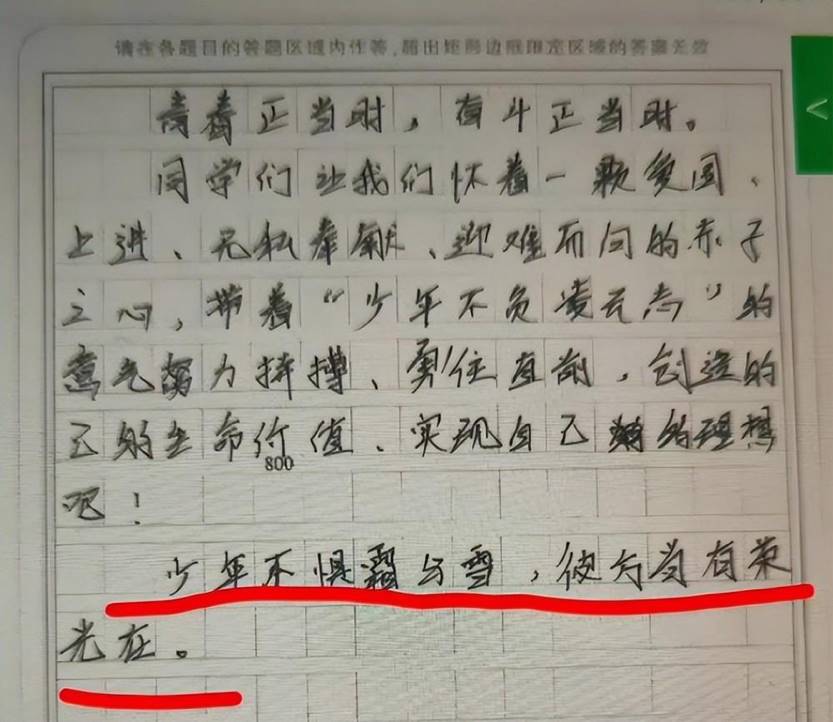 请在各题目的答题区域内作答,超出矩形边框限定区域的答案无效
青春正当时，奋斗正当时。
同学们让我们怀着一颗爱国、
上进、无私奉献、迎难而向的赤子
之心，带着“少年不负凌云志”的
意气努力拼搏、勇往直前，创造的
己的生命价值、实现自己的理想
800
吧！
少年不惧霜与雪，彼方尚有荣
光在。